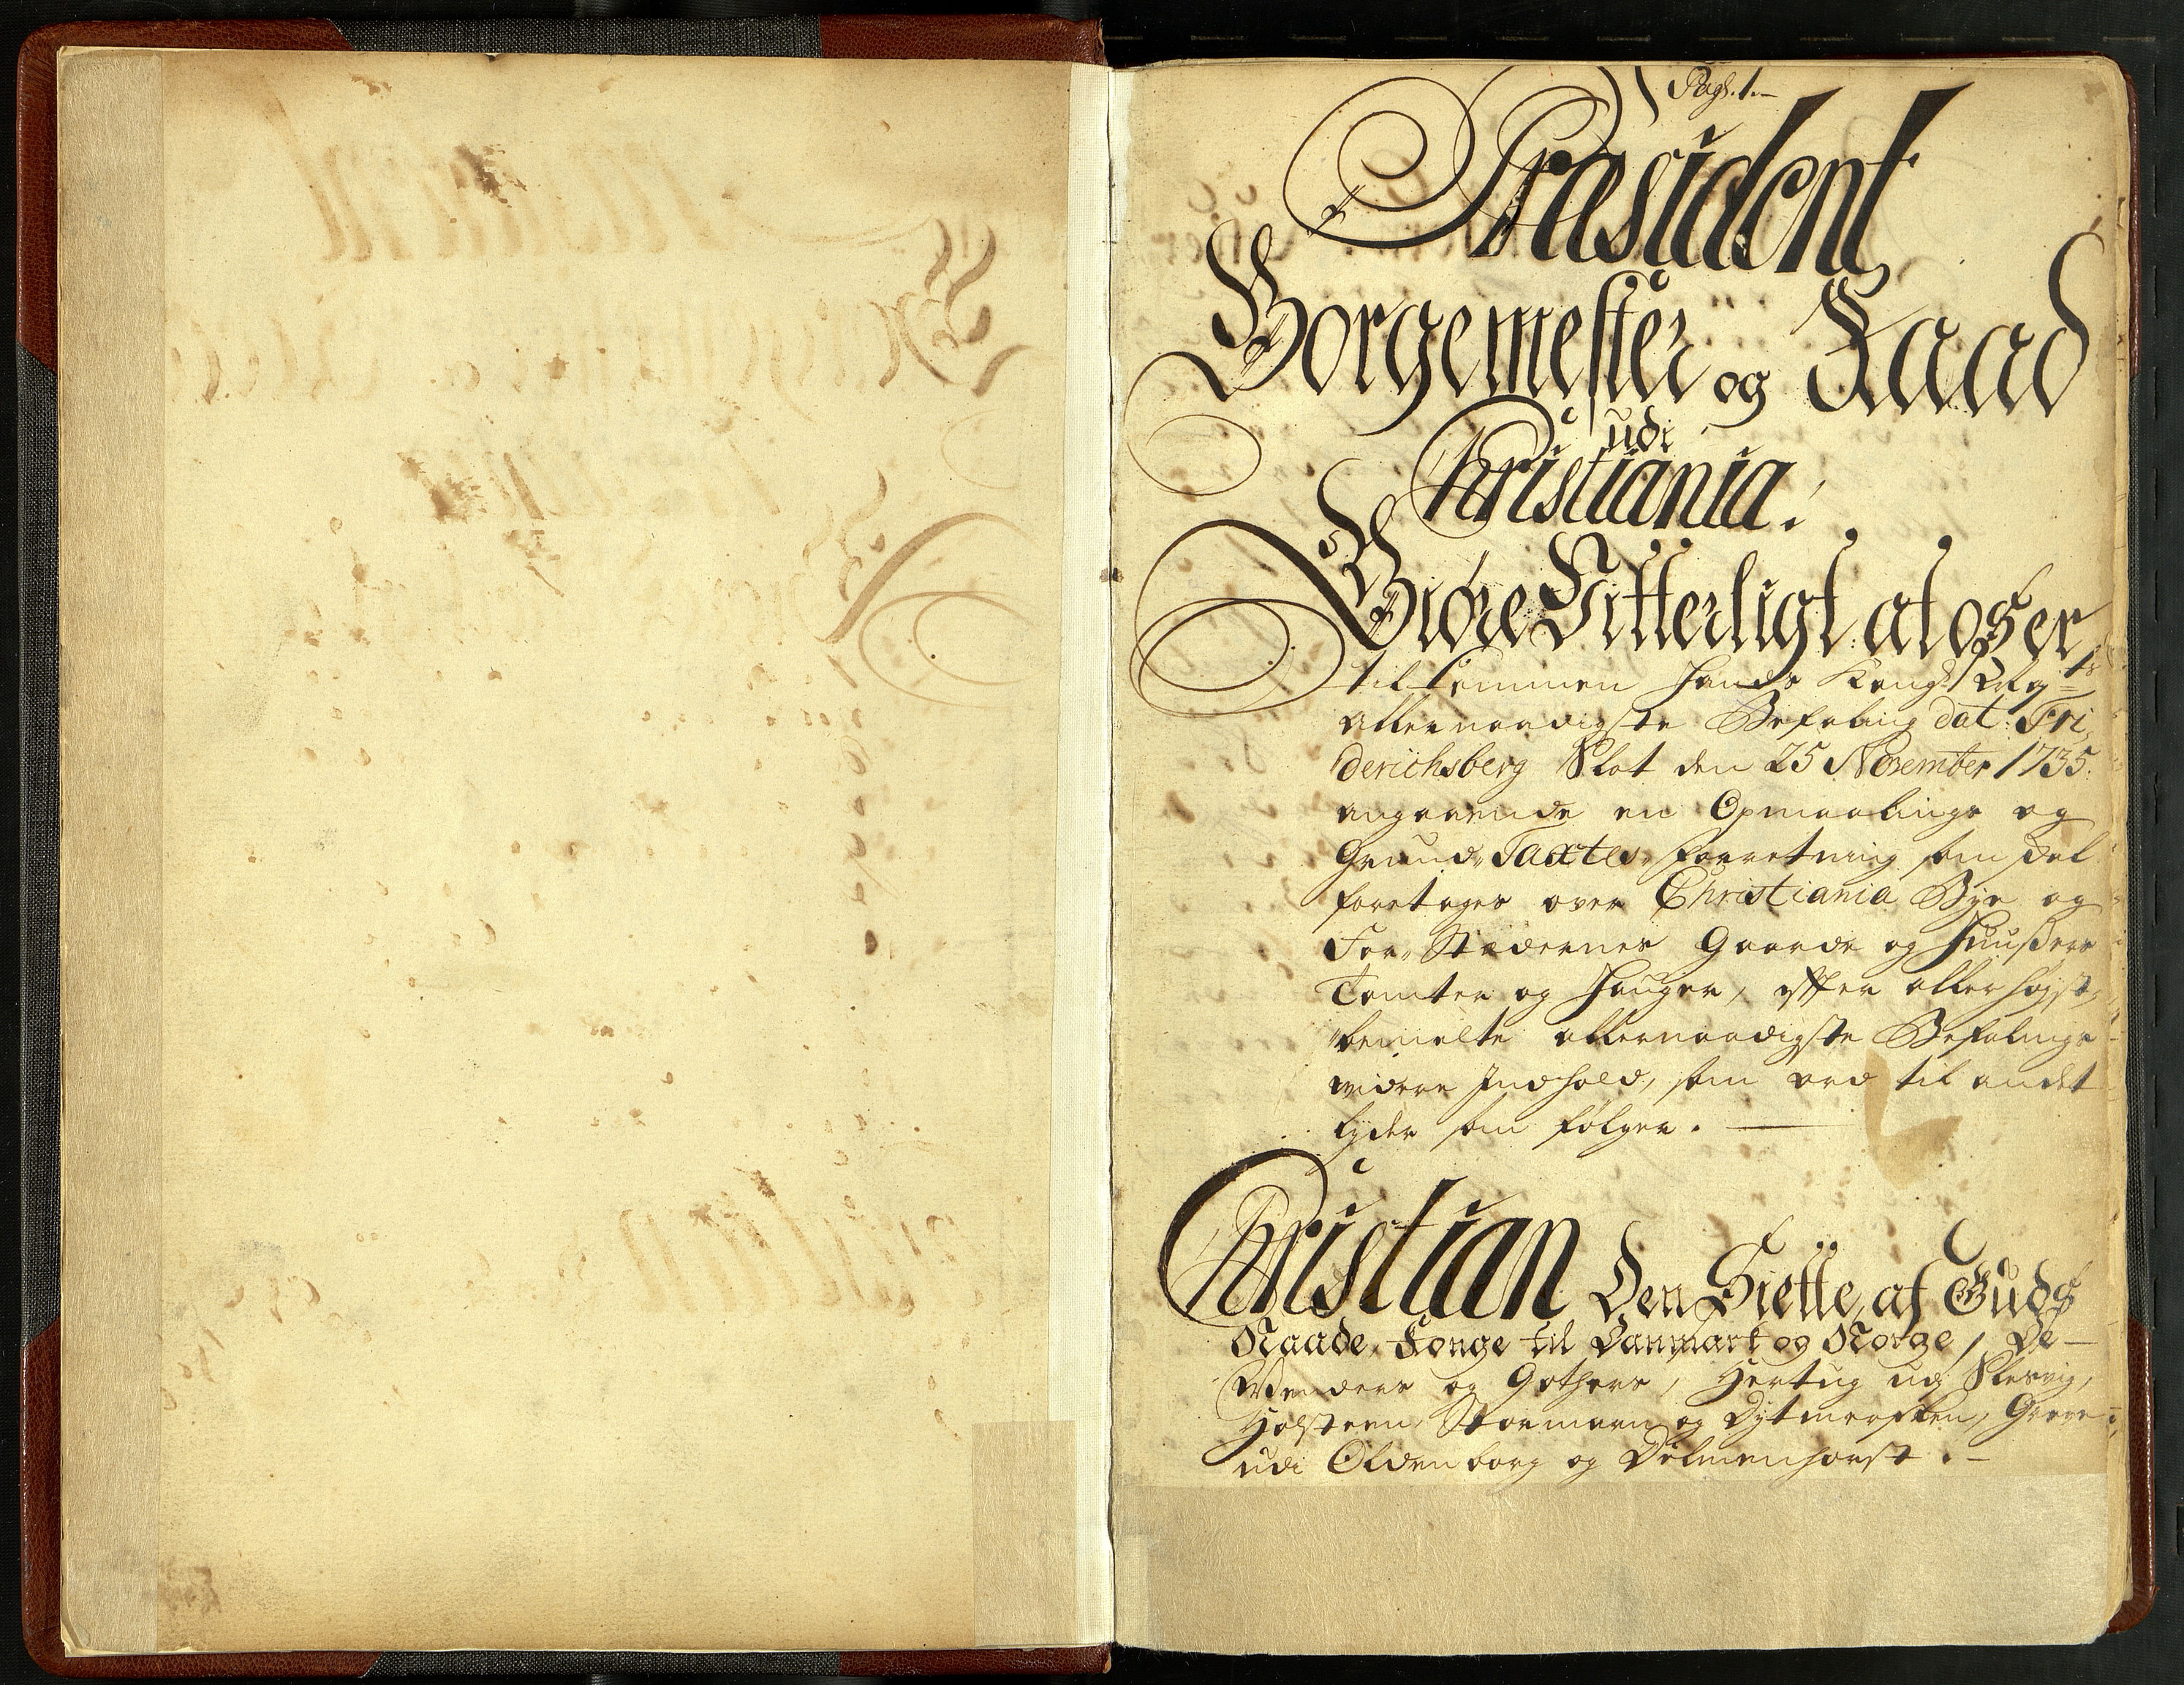 Pag. 1.
Præsident
Borgemester og Raad
udi
Christiania.
Giøre Vitterligt at oß er
tilkommen Hands Kongl. Mayts
allernaadigste Befaling dat: Fri,
derichsberg Slot den 25 November 1735.
angaaende en Opmaalings og
Grund, Taxtes, Forretning som skal
foretages over Christiania Bye og
For, Stædernes Gaarde og Huußers
Tomter og Hauger, efter allerhøyst,
bemelte allernaadigste Befalings
videre Indhold, som ord til andet
lyder som følger.
Christian Den Siette, af Guds
Naade, Konge til Danmark og Norge, De
Venders og Gothers, Hertug udj Slesvig,
Holsteen, Stormarn og Dytmersken, Greve
udi Oldenborg og Delmenhorst.